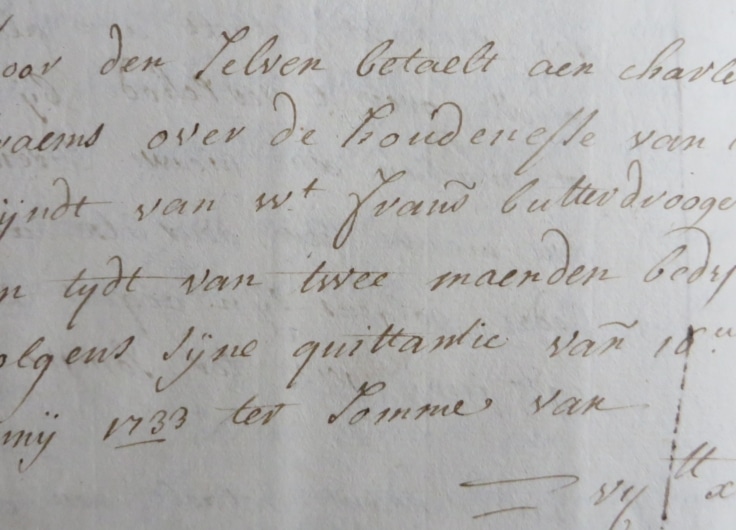 oor den selven betaelt aen charle
raems over de houdenesse van
ijndt van wt frans̄ butterdrooge
n tydt van twee maenden bedr
olgens sijne quittantie van̄ 18
mij 1733 ter somme van
vij tt x